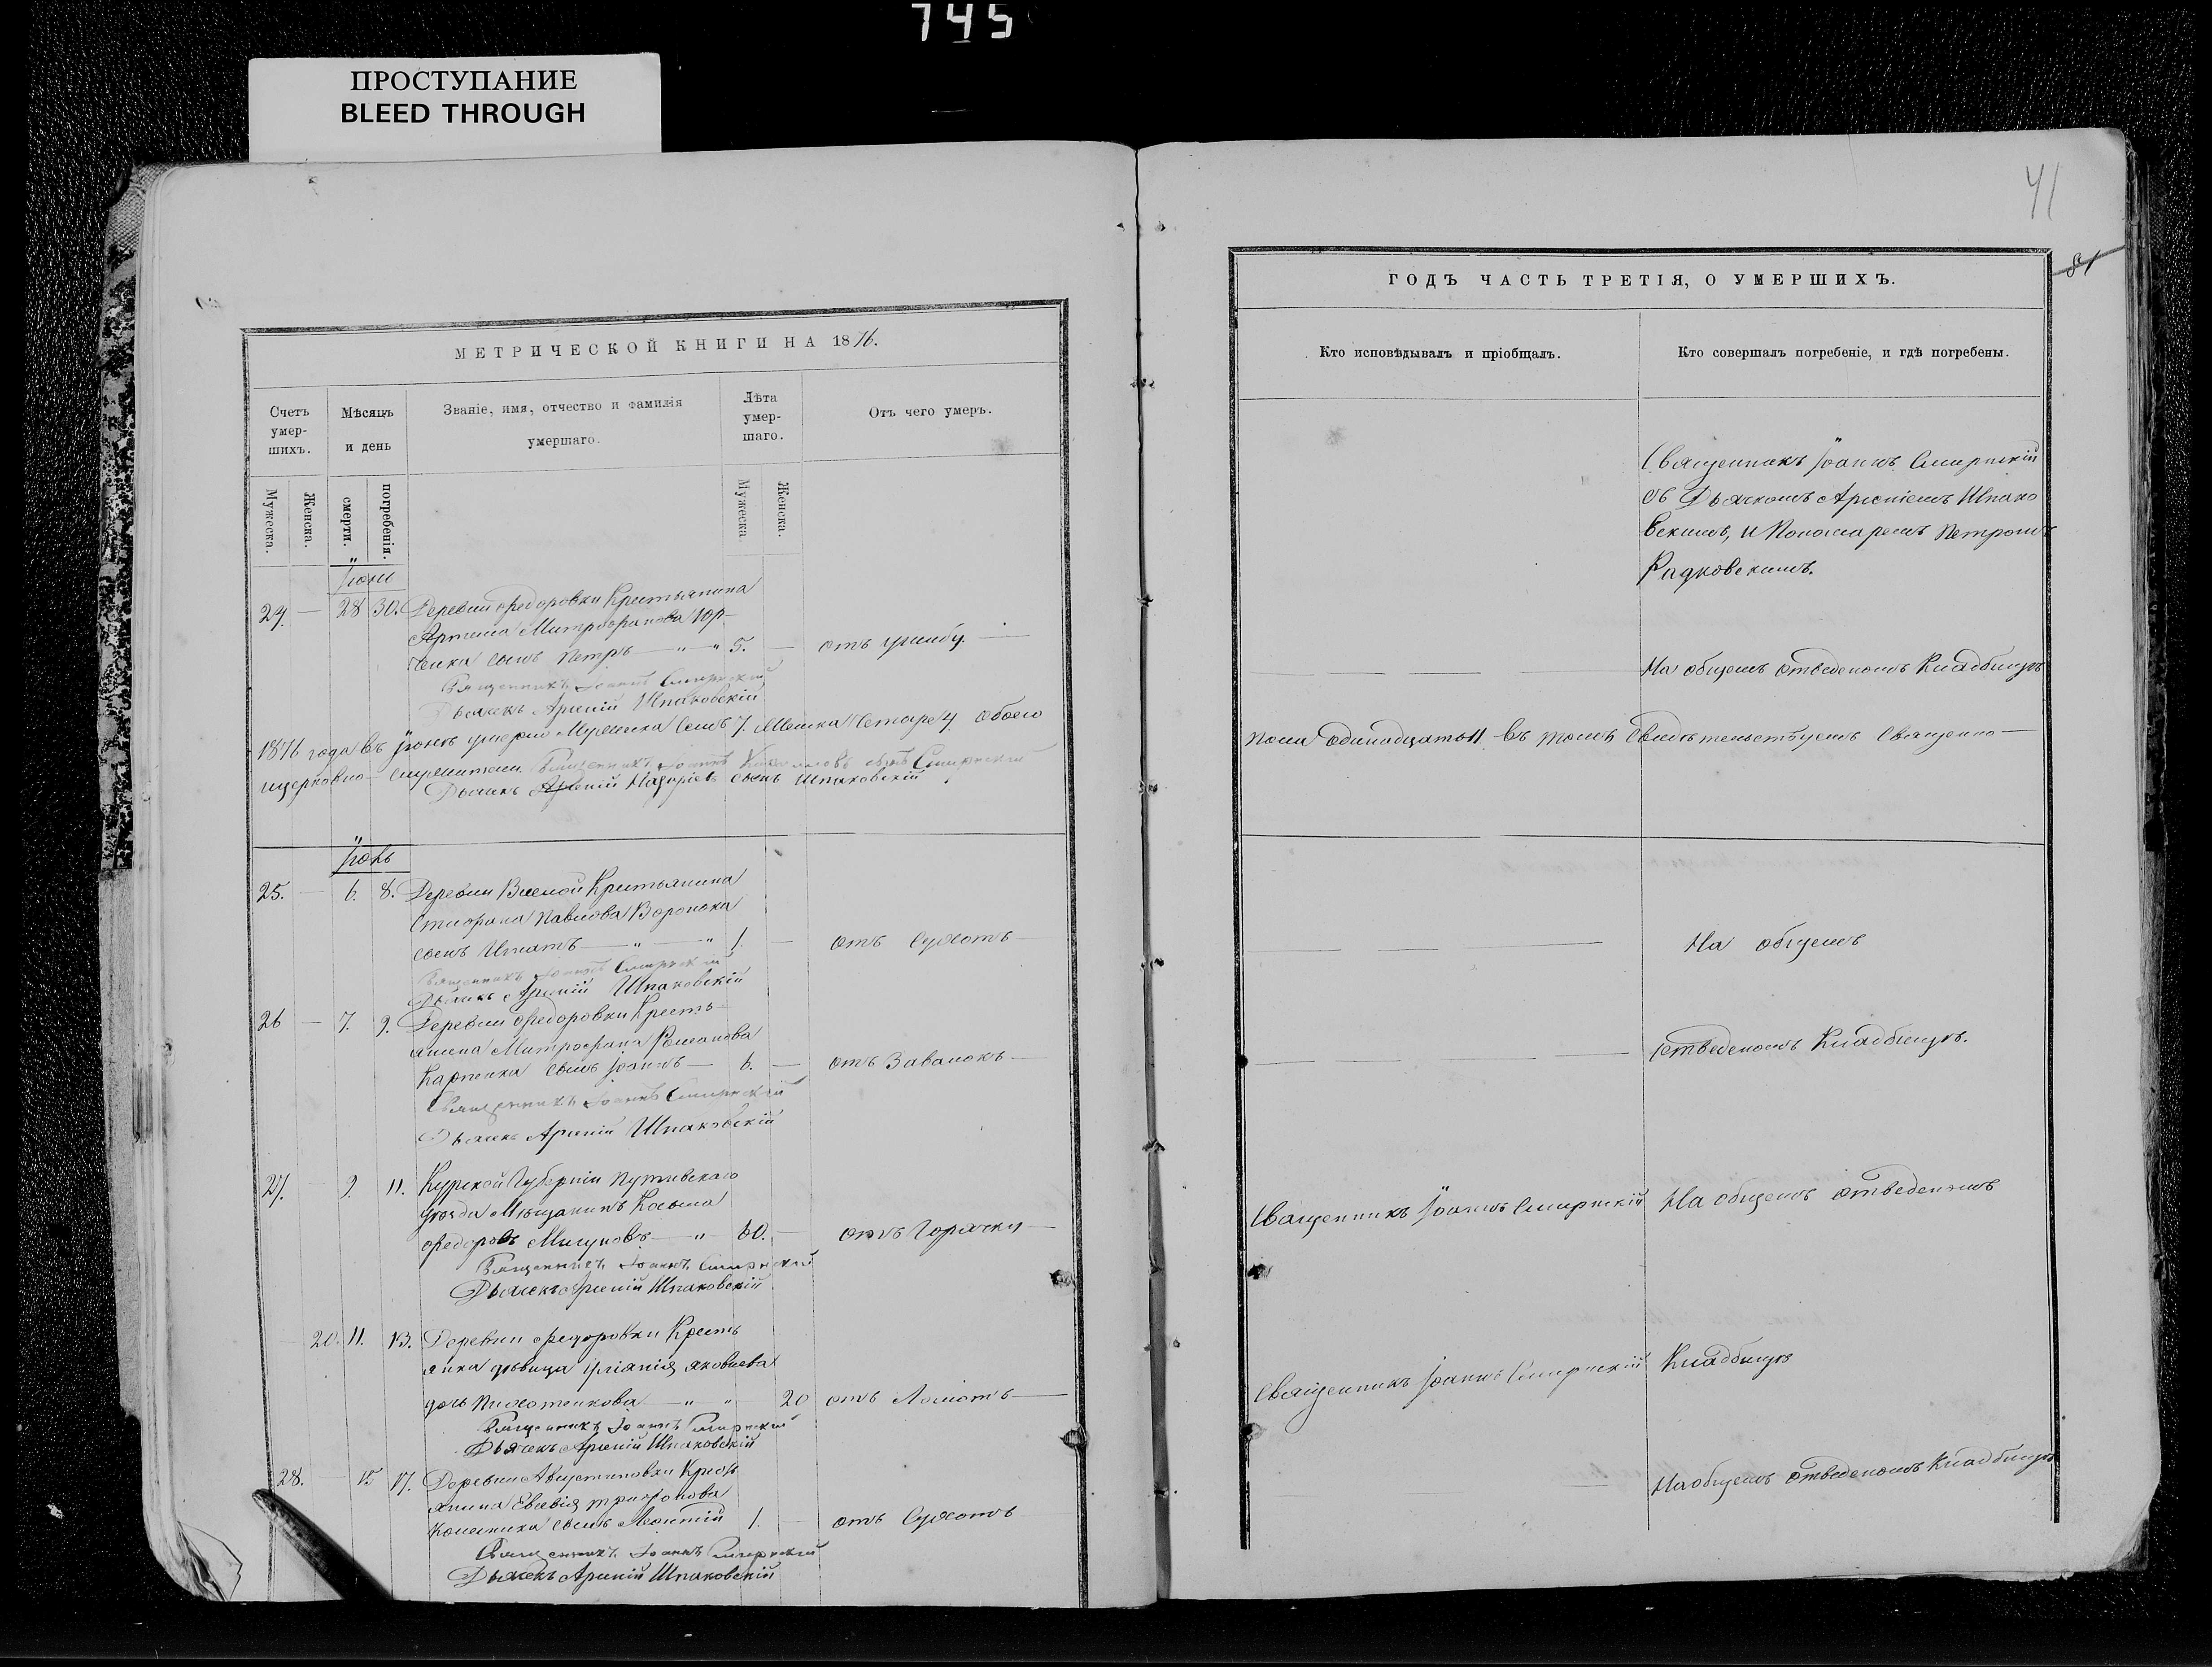 745
ПРОСТУПАНИЕ
BLEED THROUGH
МЕТРИЧЕСКОЙ КНИГИ НА 1876.
Счетъ умер-шихъ.
Мѣсяцъ и день
Званіе, имя, отчество и фамилія умершаго.
Лѣта умер-шаго.
Отъ чего умеръ.
Мужеска.
Женска.
смерти.
погребенія.
Мужеска
Женска.
Іюнь
24. — 28 30. Деревни Федоровки Крестьянина
Артема Митрофанова Юр-
ченка сынъ Петръ — " — " 5. — отъ
Священникъ Іоаннъ Смирнскій
Дьячекъ Арсеній Шпаковскій
1876 года въ Іюнѣ умерло Мужеска семь 7. Женска четыре 4 обоего
церковно- служители. Священникъ Іоаннъ сынъ Смирнскій
Дьячекъ Арсеній Назаріевъ сынъ Шпаковскій
Іюль
25. — 6. 8. Деревни Крестьянина
Стефана Павлова Воронока
сынъ Игнатъ — " — " 1. — отъ Сухотъ —
Священникъ Іоаннъ Смирнскій
Дьячекъ Арсеній Шпаковскій
26 — 7. 9. Деревни Федоровки Кресть-
янина Митрофана Романова
Карпенка сынъ Іоаннъ — 6. — отъ Завалокъ —
Священникъ Іоаннъ Смирнскій
Дьячекъ Арсеній Шпаковскій
27. — 9. 11. Курской Губерніи Путивскаго
уѣзда Мѣщанинъ Косьма
Федоровъ Мигуновъ — " — 60. — отъ Горячки —
Священникъ Іоаннъ Смирнскій
Дьячекъ Арсеній Шпаковскій
20. 11. 13. Деревни Федоровки Кресть
янка дѣвица Іуліанія Яковлева
дочь Пихотенкова — " — " 20 отъ Ломотъ —
Священникъ Іоаннъ Смирнскій
Дьячекъ Арсеній Шпаковскій
28. — 15 17. Деревни Августиновки Крест
янина Евсевія Трифонова
сынъ Леонтій 1. — отъ Сухотъ
Священникъ Іоаннъ Смирнскій
Дьячекъ Арсеній Шпаковскій
41
81
ГОДЪ ЧАСТЬ ТРЕТІЯ, О УМЕРШИХЪ.
Кто исповѣдывалъ и пріобщалъ.
Кто совершалъ погребеніе, и гдѣ погребены.
Священникъ Іоаннъ Смирнскій
съ Дьячкомъ Арсеніемъ Шпако
вскимъ, и Пономаремъ Петромъ
Радковскимъ.
На общемъ отведеномъ Кладбищѣ
пола одинадцать 11. въ томъ свидѣтельствуемъ Священно —
На общемъ
отведеномъ Кладбищѣ.
Священникъ Іоаннъ Смирнскій На общемъ отведеномъ
Священникъ Іоаннъ Смирнскій Кладбищѣ
На общемъ отведеномъ Кладбищѣ